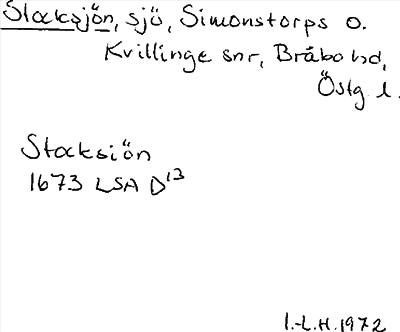 Stocksjön, sjö, Simonstorps o.
Kvillinge snr, Bråbo hd,
Östg. l.
Stocksiön
1673 LSA D13
I.-L.H. 1972